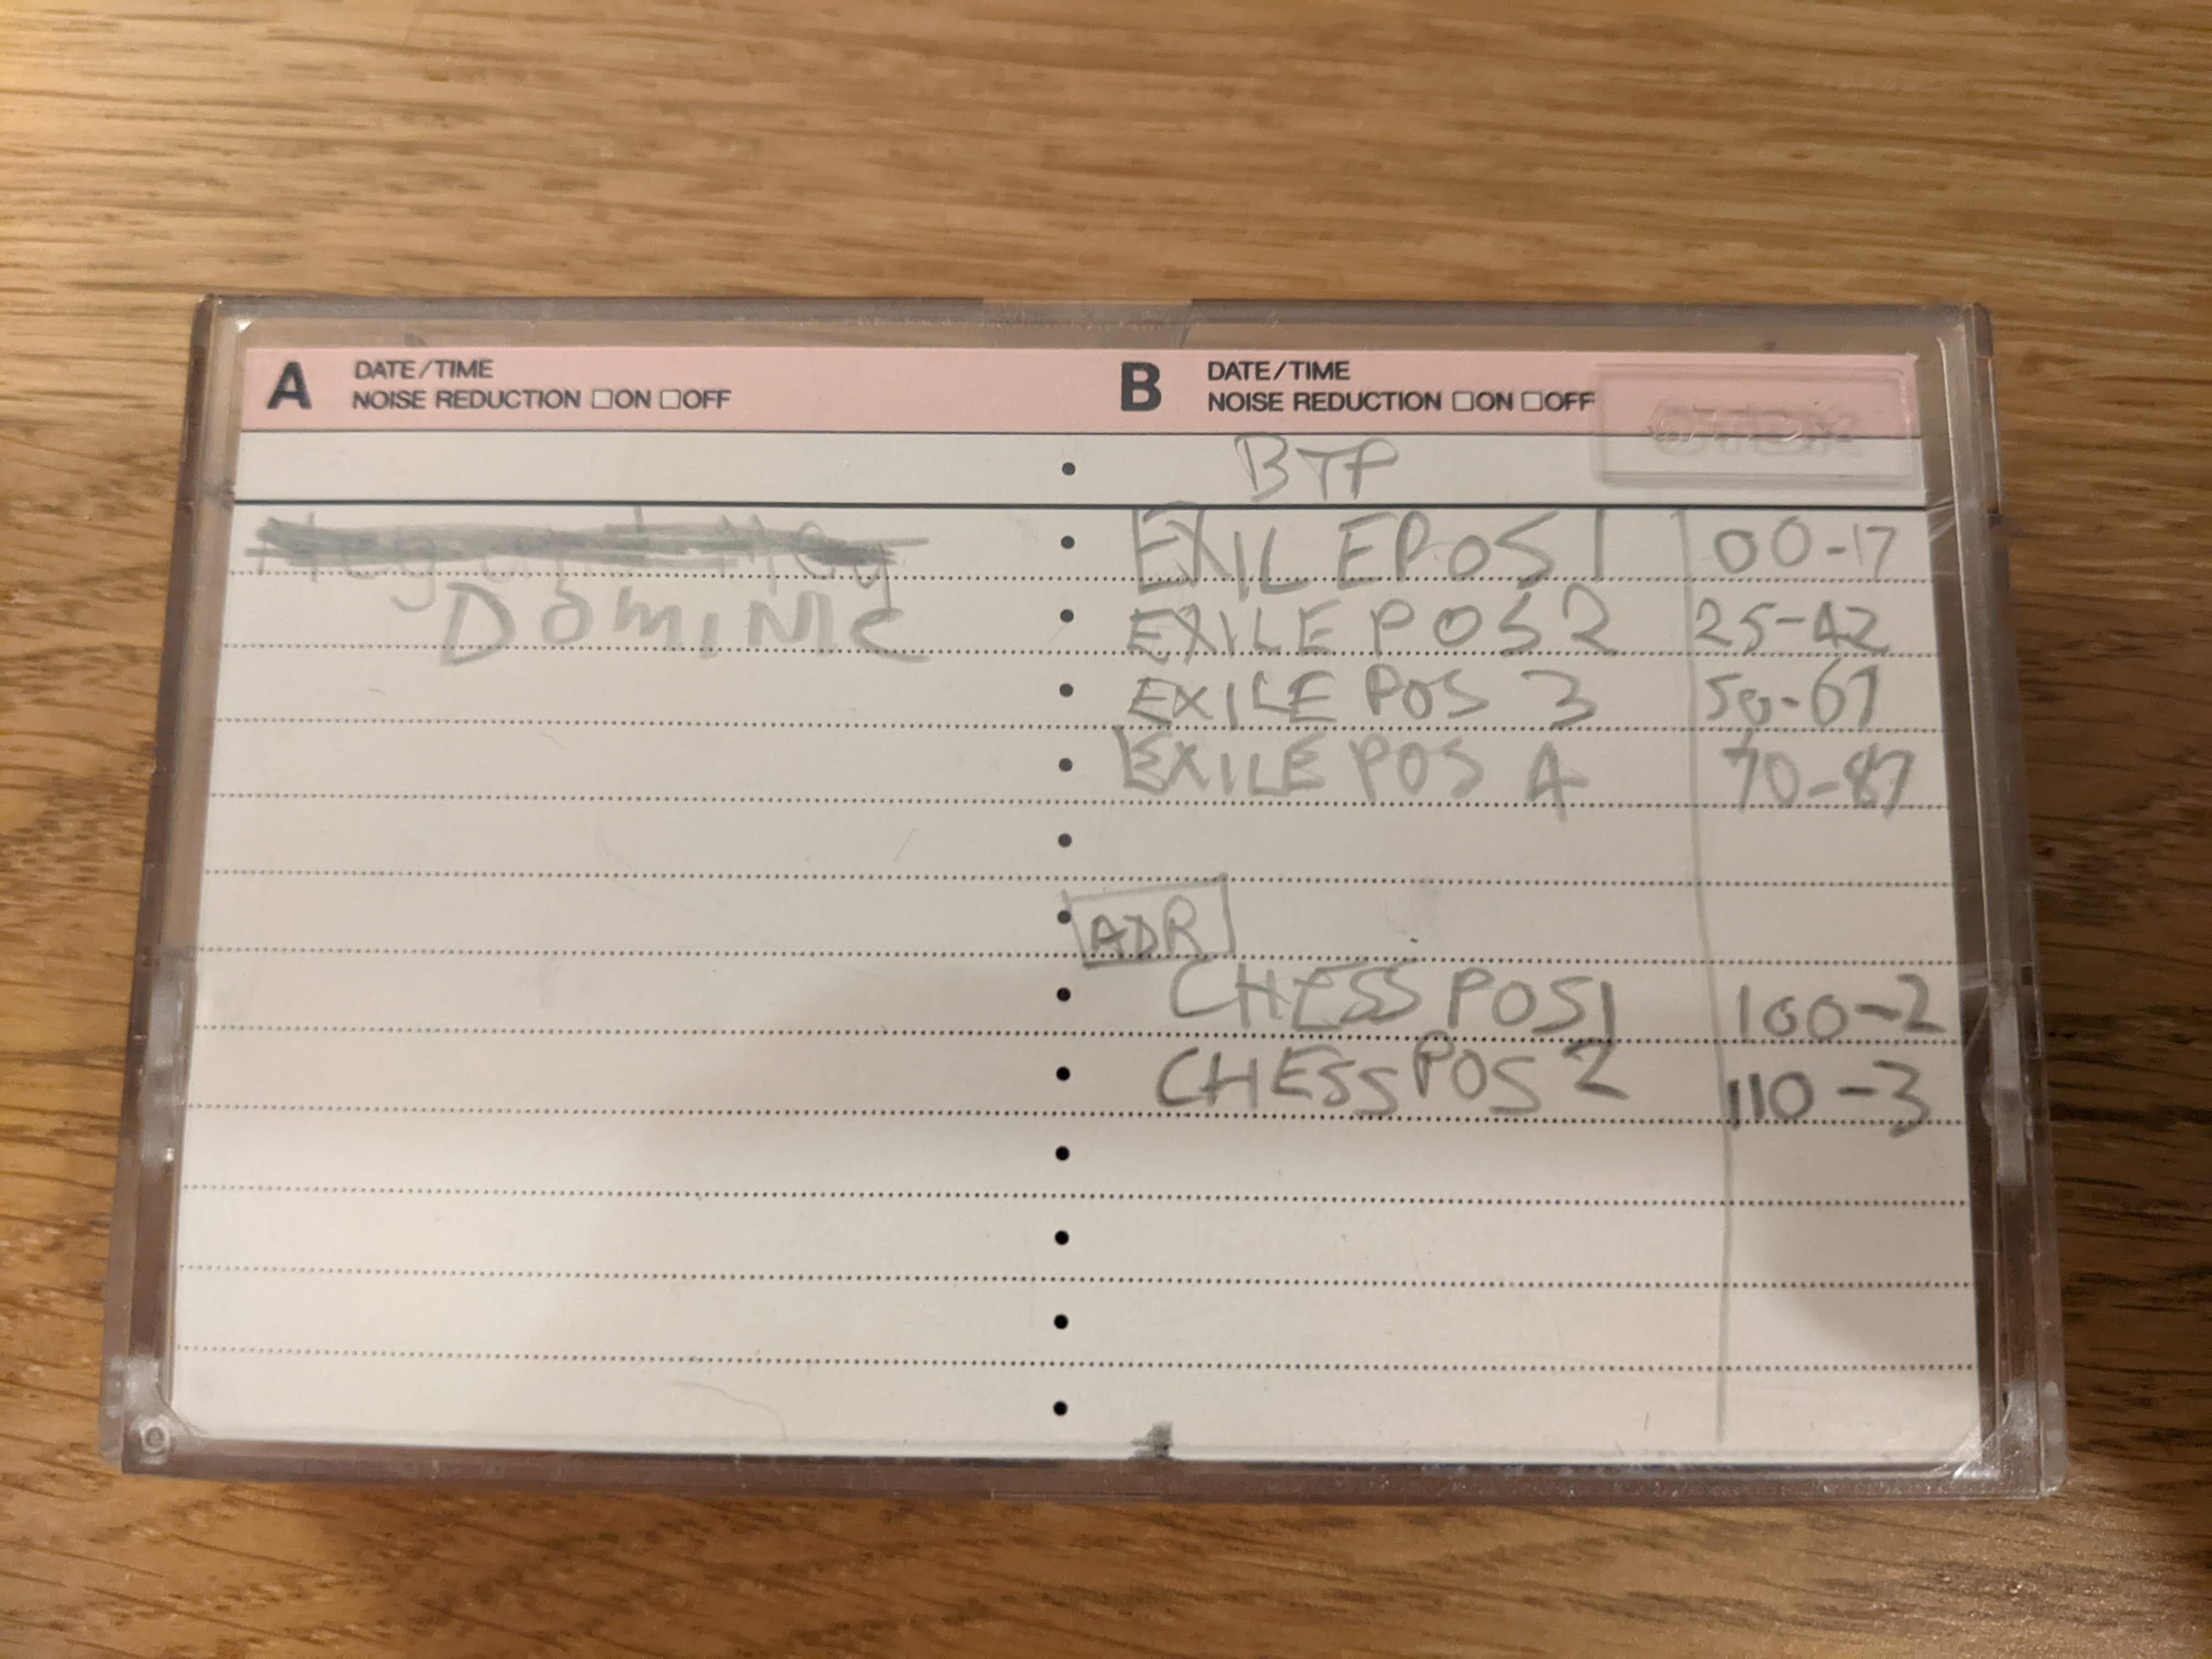 A DATE/TIME
NOISE REDUCTION □ON □OFF
B DATE/TIME
NOISE REDUCTION □ON □OFF
DOMINIC
BTP
EXILE POS 1 00-17
EXILE POS 2 25-42
EXILE POS 3 50-67
EXILE POS 4 70-87
ADR
CHESS POS 1 100-2
CHESS POS 2 110-3